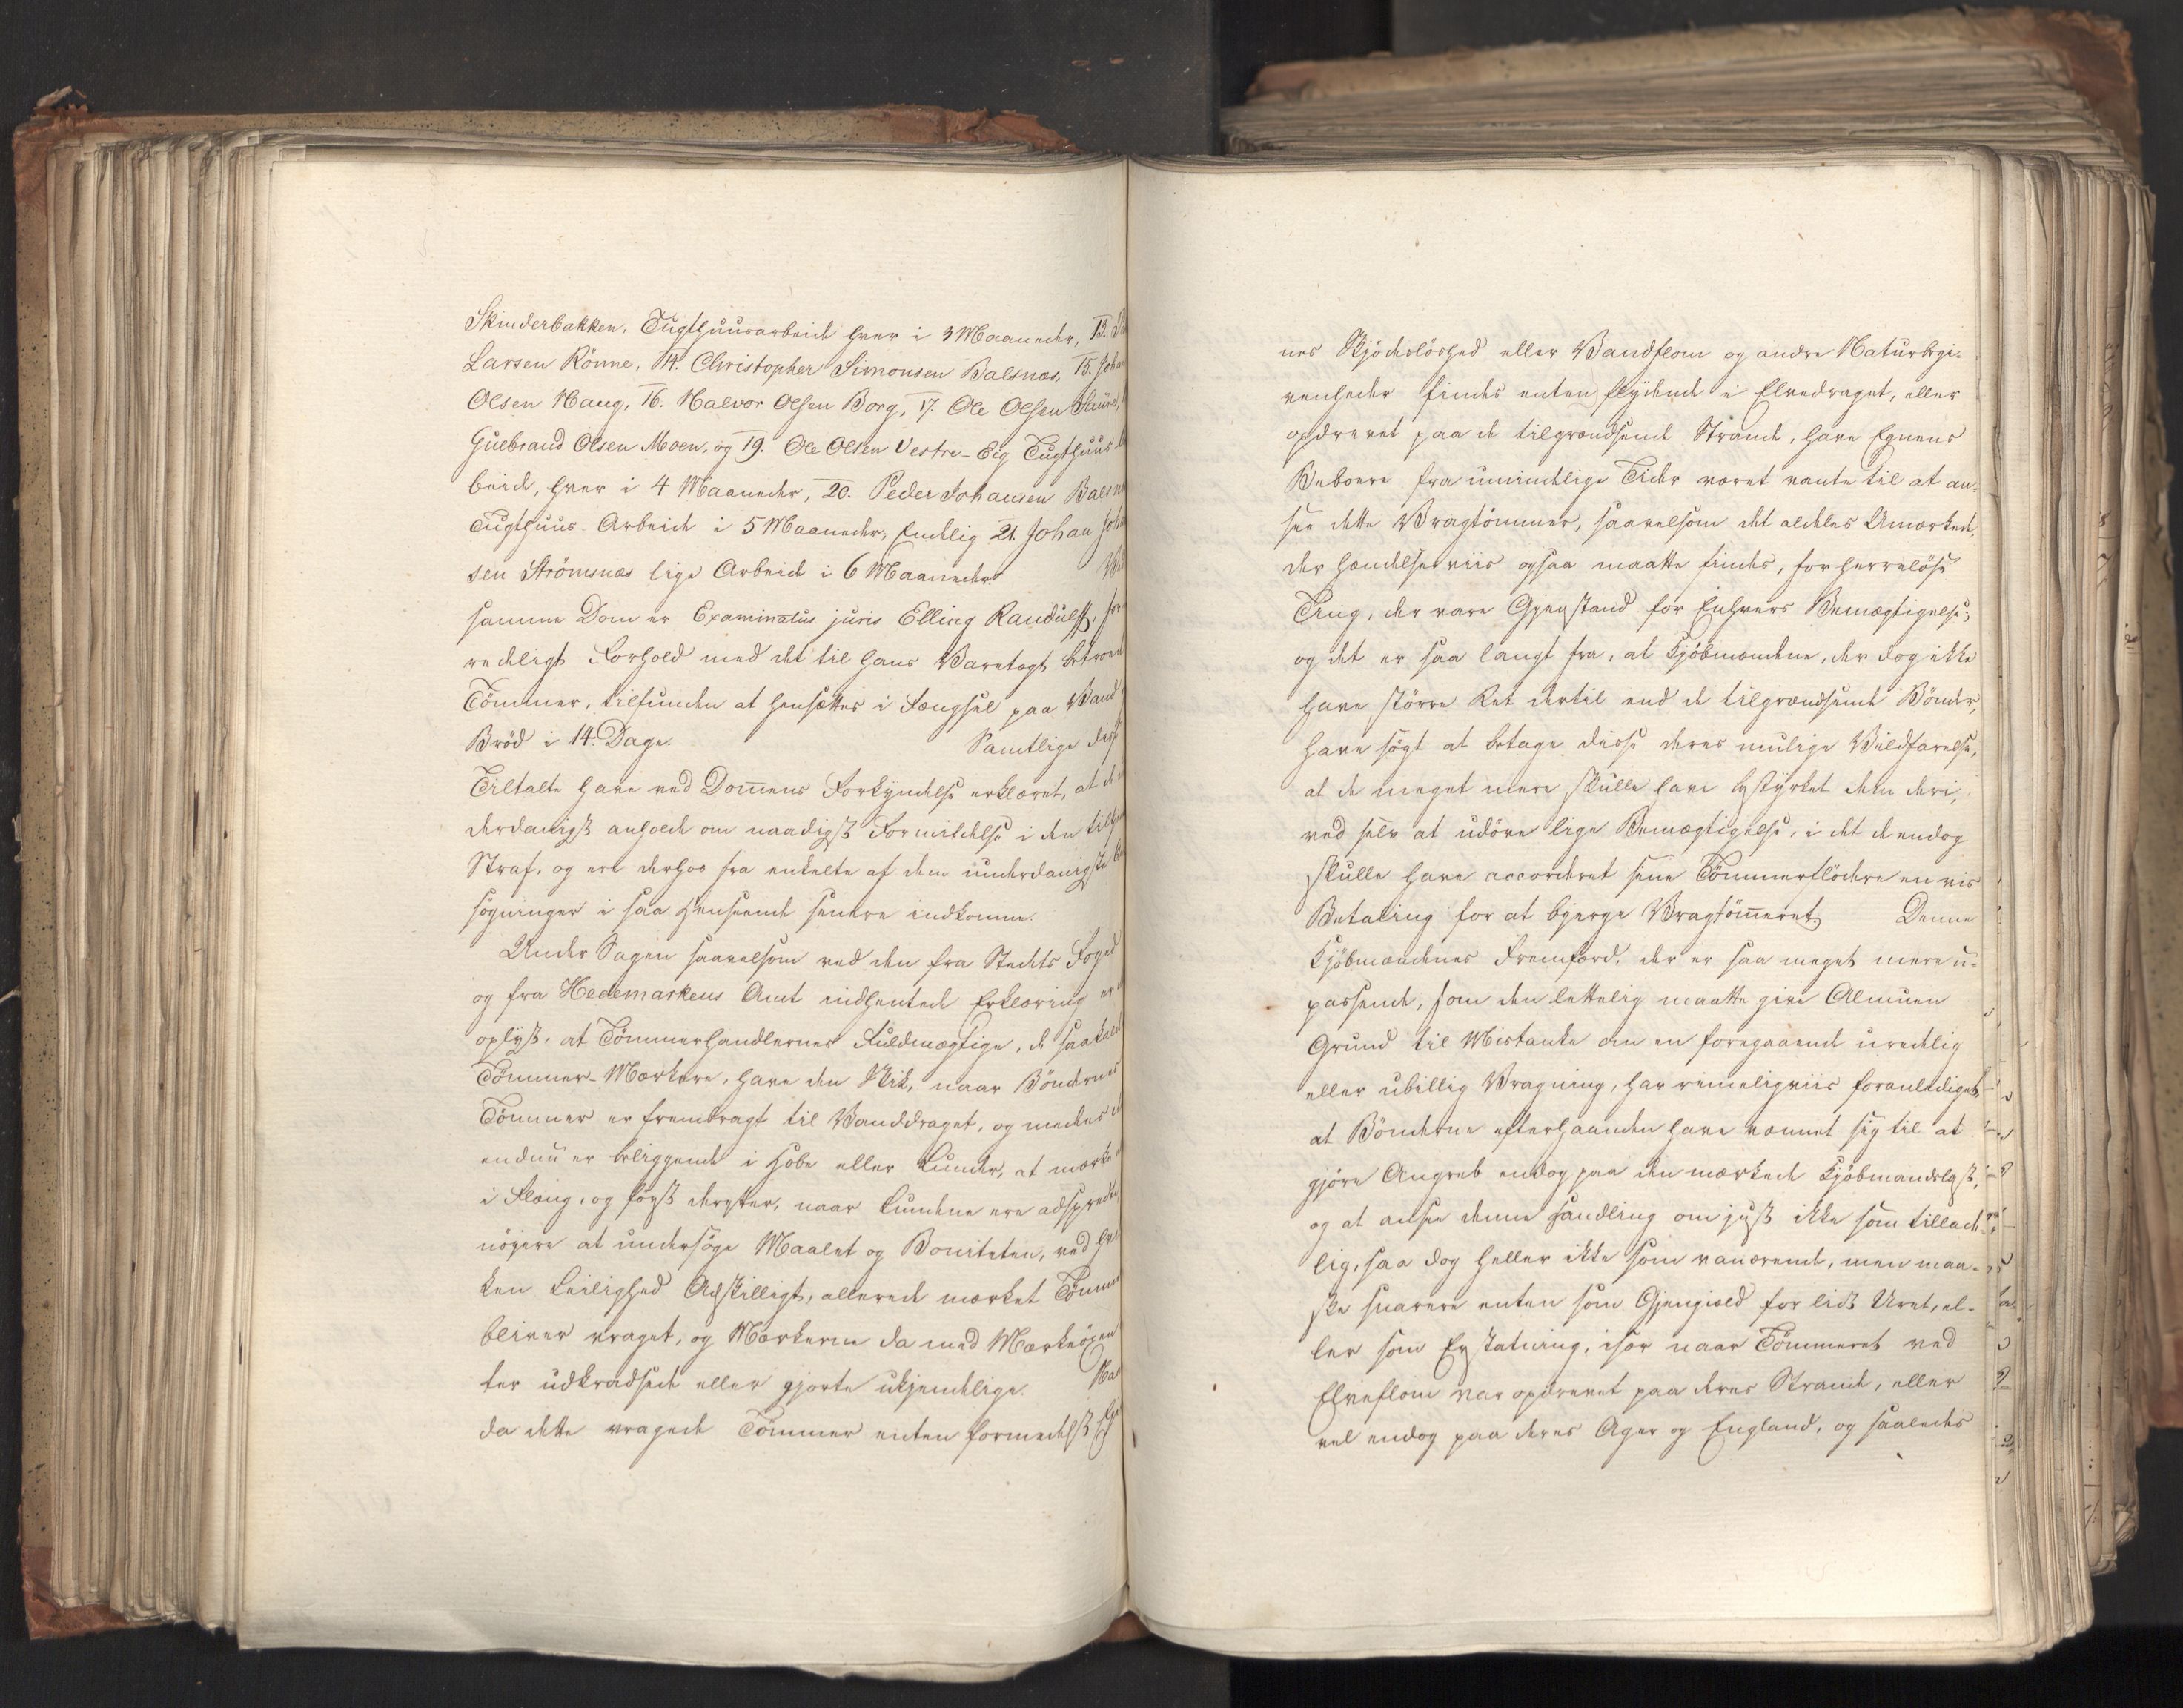 Skinderbakken, Tugthuusarbeide hver i 3 Maaneder, 13.
Larsen Rönne, 14. Christopher Simonsen Balsnæs, 15. Joh
Olsen Haug, 16. Halvor Olsen Borg, 17. Ole Olsen Saure,
Gulbrand Olsen Moen, og 19. Ole Olsen Vestre-Eeg Tugthuus
beide, hver i 4 Maaneder, 20. Peder Johansen Balsn
Tugthuus Arbeide i 5 Maaneder, Endelig 21. Johan Joh
sen Strömsnæs lige Arbeide i 6 Maaneder. Ve
samme Dom er Examinatus juris Elling Randulff, for
redeligt Forhold med det til hans Varetægt betroede
Tömmer, tilfunden at hensættes i Fængsel paa Vand
Bröd i 14. Dage. Samtlige diss
Tiltalte have ved Dommens Forkyndelse erklæret, at de
derdanigst anholde om naadigst Formildelse i den tilf
Straf, og ere derhos fra enkelte af dem underdanigste
sögninger i saa Henseende senere indkomne.
Under Sagen saavelsom ved den fra Stedets Foged
og fra Hedemarkens Amt indhentede Erklæring er
oplyst, at Tömmerhandlernes Fuldmægtige, de saakald
Tömmer-Mærkere, have den Skik, naar Böndernes
Tömmer er frembragt til Vanddraget, og medens
endnu er beliggende i Hobe eller Lunder, at mærke
i Flæng, og först derefter, naar Lunderne ere adspredte
nöiere at undersöge Maalet og Boniteten, ved hvil
ken Leilighed Adskilligt, allerede mærket Tömmer
bliver vraget, og Mærkerne da med Mærkeöxen
ter udkradsede eller gjorte ukjendelige. Naar
da dette vragede Tömmer enten formedelst Ejer
nes Skjödeslöshed eller Vandflom og andre Naturbegi-
venheder findes enten flydende i Elvedraget, eller
opdrevet paa de tilgrændsende Strande, have Egnens
Beboere fra umindelige Tider været vante til at an-
see dette Vragtömmer, saavelsom det aldeles Umærkede,
der hændelseviis ogsaa maatte findes, for herrelöse
Ting, der vare Gjenstand for Enhvers Bemægtigelse;
og det er saa langt fra, at Kjöbmændene, der dog ikke
have större Ret dertil end de tilgrændsende Bönder,
have sögt at betage disse deres mulige Vildfarelse,
at de meget mere skulle have bestyrket dem deri,
ved selv at udöve lige Bemægtigelse, i det de endog
skulle have accorderet sine Tömmerflödere en vis
Betaling for at bjerge Vragtömmeret. Denne
Kjöbmændenes Fremfærd, der er saa meget mere u-
passende, som den lettelig maatte give Almuen
Grund til Mistanke om en foregaaende uredelig
eller ubillig Vragning, har rimeligviis foranlediget,
at Bönderne efterhaanden have vænnet sig til at
gjöre Angreb endog paa den mærkede Kjöbmandslast,
og at ansee denne Handling om just ikke som tillade-
lig, saa dog heller ikke som vanærende, men maa-
ske snarere enten som Gjengiæld for lidt Uret, el-
ler som Erstatning, især naar Tömmeret ved
Elveflom var opdrevet paa deres Strande, eller
vel endog paa deres Ager og England, og saaledes